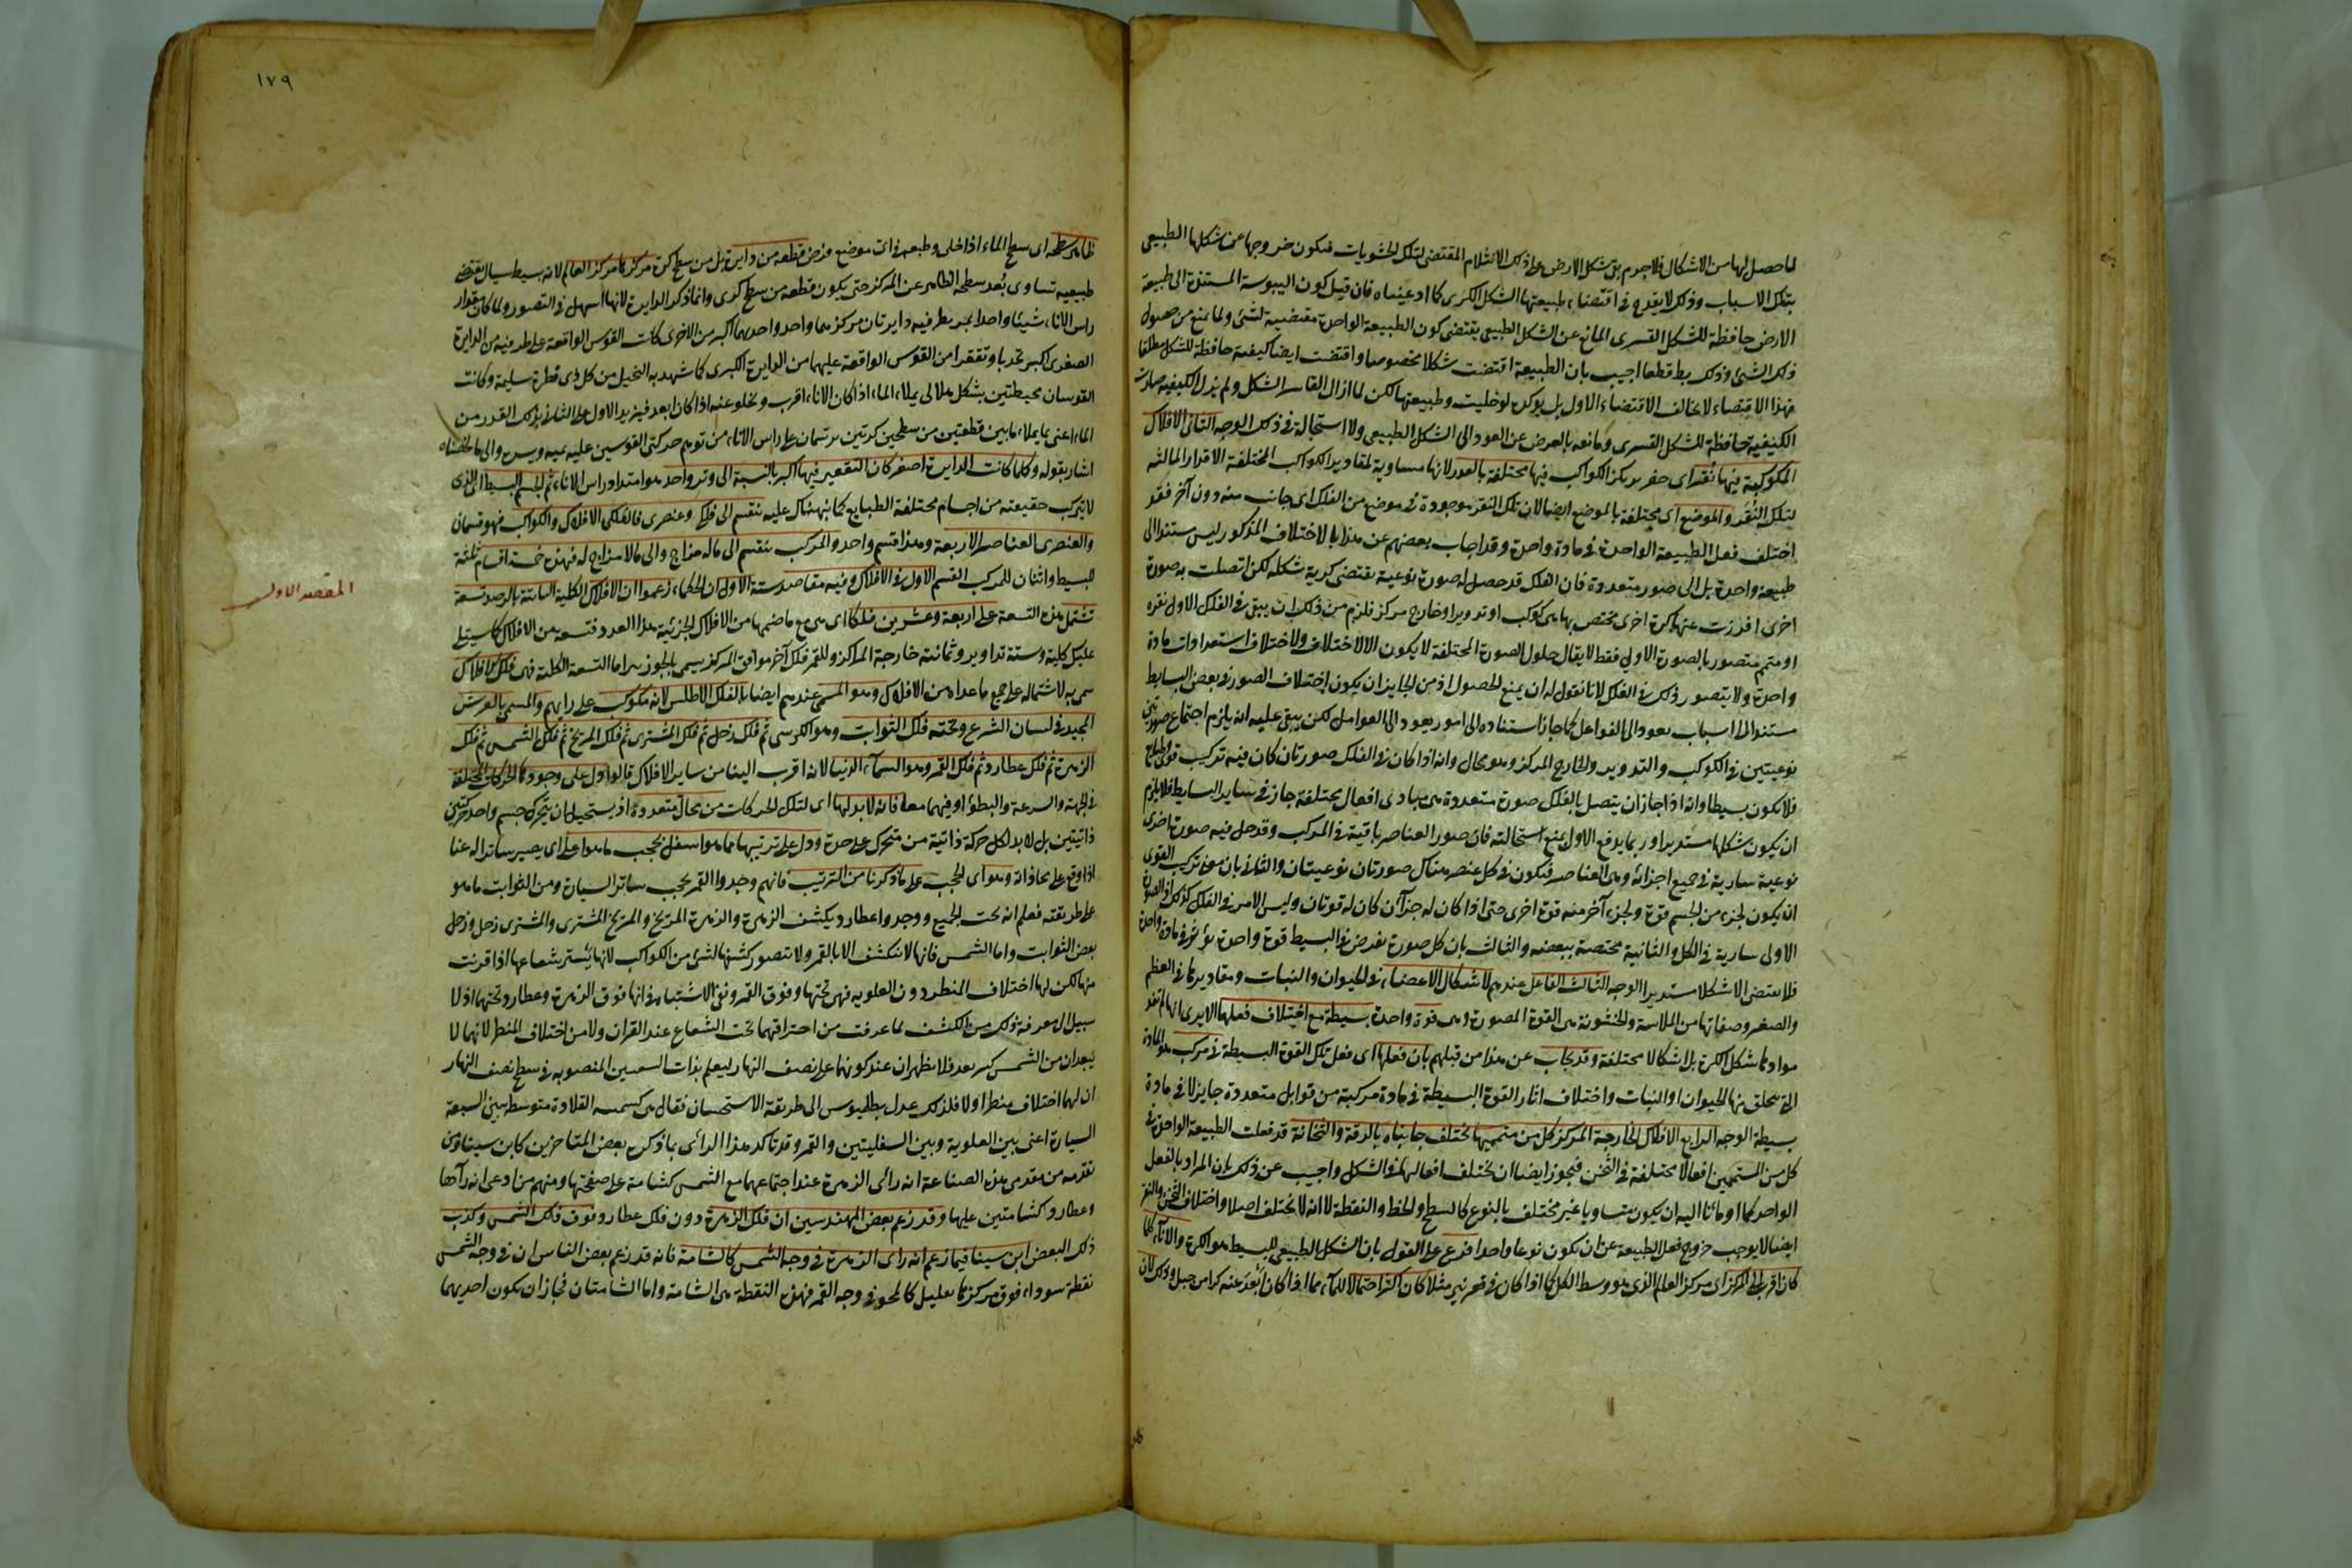 لما حصل لها من الاشكال فلا جرم بقى شكل الارض على ذلك الانثلام المقتضى لتلك الخشونات فيكون خروجها عن شكلها الطبيعى
بتلك الاسباب وذلك لا يقدح فى اقتضاء طبيعتها الشكل الكرى كما ادعيناه فان قيل كون اليبوسة المستندة الى طبيعة
الارض حافظة للشكل القسرى المانع عن الشكل الطبيعى يقتضى كون الطبيعة الواحدة مقتضية لشئ ولما يمنع من حصول
ذلك الشئ وذلك بط قطعا اجيب بان الطبيعة اقتضت شكلا مخصوصا واقتضت ايضا كيفية حافظة للشكل مطلقا
فهذا الاقتضاء لا يخالف الاقتضاء الاول بل يوكده لو خليت وطبيعتها لكن لما ازال القاسر الشكل ولم يزل الكيفية صارت
الكيفية حافظة للشكل القسرى ومانعه بالعرض عن العود الى الشكل الطبيعى ولا استحالة فى ذلك الوجه الثانى الافلاك
المكوكبة فيها نقر اى حفر يركز الكواكب فيها مختلفة بالقدر لانها مساوية لمقادير الكواكب المختلفة الاقدار المالئة
لتلك النقر والموضع اى مختلفة بالموضع ايضا لان تلك النقر موجودة فى موضع من الفلك اى جانب منه دون آخر فقد
اختلف فعل الطبيعة الواحدة فى مادة واحدة وقد اجاب بعضهم عن هذا بالاختلاف المذكور ليس مستندا الى
طبيعة واحدة بل الى صور متعددة فان الفلك قد حصل له صورة نوعية يقتضى كرية شكله لكن اتصلت به صورة
اخرى افرزت عنها كرة اخرى مختص بها هى كوكب او تدويرا وخارج مركز فلزم من ذلك ان يبقى فى الفلك الاول نقرة
او متمم متصور بالصورة الاولى فقط لا يقال حلول الصورة المختلفة لا يكون الا لاختلاف ولاختلاف استعدادات مادة
واحدة ولا يتصور ذلك فى الفلك لانا نقول له ان يمنع الحصول اذ من الجايز ان يكون اختلاف الصور فى بعض البسايط
مستندا الى اسباب يعود الى الفواعل كما جاز استناده الى امور يعود الى القوابل لكن يبقى عليه انه يلزم اجتماع صورتين
نوعيتين فى الكوكب والتدوير والخارج المركز وهو محال وانه اذا كان فى الفلك صورتان كان فيه تركيب قوى وطبايع
فلا يكون بسيطا وانه اذا جاز ان يتصل بالفلك صورة متعددة هى مبادى افعال مختلفة جاز فى ساير البسايط فلا يلزم
ان يكون شكلها مستديرا وربما يدفع الاول بمنع استحالته فان صور العناصر باقية فى المركب وقد حل فيه صورة اخرى
نوعية سارية فى جميع اجزائه وهى العناصر فيكون فى كل عنصر هناك صورتان نوعيتان والثانى بان معنى تركيب القوى
ان يكون لجزء من الجسم قوة ولجزء آخر منه قوة اخرى حتى اذا كان له جزآن كان له قوتان وليس الامر فى الفلك كذلك اذ الصورة
الاولى سارية فى الكل والثانية مختصة ببعضه والثالث بان كل صورة نفرض فى البسيط قوة واحدة تؤثر فى مادة واحدة
فلا يقتضى الا شكلا مستديرا الوجه الثالث الفاعل عندهم لاشكال الاعضاء فى الحيوان والنبات ومقاديرها فى العظم
والصغر وصفاتها من الملاسة والخشونة هى القوة المصورة وهى قوة واحدة بسيطة مع اختلاف فعلها الا يرى انها لم تفد
موادها شكل الكرة بل اشكالا مختلفة وقد يجاب عن هذا من قبلهم بان فعلها اى فعل تلك القوة البسيطة فى مركب هو المادة
التى يتخلق منها الحيوان او النبات واختلاف اثار القوة البسيطة فى مادة مركبة من قوابل متعددة جايز لا فى مادة
بسيطة الوجه الرابع الافلاك الخارجة المركز كل من متمميها تختلف جانباه بالرقة والثخانة قد فعلت الطبيعة الواحدة فى
كل من المتممين افعالا مختلفة فى الثخن فيجوز ايضا ان تختلف افعالها فى الشكل واجيب عن ذلك بان المراد بالفعل
الواحد كما اومأنا اليه ان يكون متساويا غير مختلف بالنوع كالسطح والخط والنقطة لا انه لا يختلف اصلا واختلاف الثخن والنقر
ايضا لا يوجب خروج فعل الطبيعة عن ان يكون نوعا واحدا فرع على القول بان الشكل الطبيعى للبسيط هو الكرة والاناء كلما
كان اقرب الى المركز اى مركز العالم الذى هو وسط الكل كما اذا كان فى قعر بئر مثلا كان اكثر احتمالا للماء مما اذا كان ابعد عنه كراس جبل وذلك لان
١٧٩
ظاهر سطحه اى سطح الماء اذا خلى وطبعه فى اى موضع فرض قطعة من دايرة بل من سطح كرة مركزها مركز العالم لانه بسيط سيال يقتضى
طبيعيه تساوى بُعد سطحه الظاهر عن المركز حتى يكون قطعة من سطح كرى وانما ذكر الدايرة لانها اسهل فى التصور ولما كان مقدار
راس الاناء شيئا واحدا يمر بطرفيه دايرتان مركزهما واحد واحديهما اكبر من الاخرى كانت القوس الواقعة على طرفيه من الدايرة
الصغرى اكبر تحدبا وتقعرا من القوس الواقعة عليهما من الدايرة الكبرى كما شهد به التخيل من كل ذى فطرة سليمة وكانت
القوسان محيطتين بشكل هلالى يملاء الماء اذا كان الاناء اقرب ويخلو عنه اذا كان ابعد فيزيد الاول على الثانى بذلك القدر من
الماء اعنى ما يملاء ما بين قطعتين من سطحين كرتين يرتسمان على راس الاناء من توهم حركتى القوسين عليه يمينه ويسره والى ما لخصناه
اشار بقوله وكلما كانت الدايرة اصغر كان التقعير فيها اكبر بالنسبة الى وتر واحد هو امتداد راس الاناء ثم الجسم البسيط اى الذى
لا يتركب حقيقته من اجسام مختلفة الطبايع كما نبهناك عليه ينقسم الى فلكى وعنصرى فالفلكى الافلاك والكواكب فهو قسمان
والعنصرى العناصر الاربعة وهذا قسم واحد والمركب ينقسم الى ماله مزاج والى مالا مزاج له فهذه خمسة اقسام ثلثة
للبسيط واثنان للمركب القسم الاول فى الافلاك وفيه مقاصد ستة الاول ان الحكماء زعموا ان الافلاك الكلية الثابتة بالرصد تسعة
المقصد الاول
تشتمل هذه التسعة على اربعة وعشرين فلكا اى هى مع ما ضمنها من الافلاك الجزئية هذا العدد فتسعة من الافلاك كما سيتلى
عليك كلية وستة تداوير وثمانية خارجة المراكز وللقمر فلك آخر موافق المركز يسمى بالجوزهر اما التسعة الكلية فهى فلك الافلاك
سمى به لاشتماله على جميع ما عداه من الافلاك وهو المسمى عندهم ايضا بالفلك الاطلس لانه غير مكوكب على رايهم والمسمى بالعرش
المجيد فى لسان الشرع وتحته فلك الثوابت وهو الكرسى ثم فلك زحل ثم فلك المشترى ثم فلك المريخ ثم فلك الشمس ثم فلك
الزهرة ثم فلك عطارد ثم فلك القمر وهو السماء الدنيا لانه اقرب الينا من ساير الافلاك قالوا دل على وجودها الحركات المختلفة
فى الجهة والسرعة والبطؤ او فيهما معا فانه لابد لها اى لتلك الحركات من محال متعددة اذ يستحيل ان يتحرك جسم واحد حركتين
ذاتيتين بل لابد لكل حركة ذاتية من متحرك على حدة ودل على ترتيبها مما هو اسفل يحجب ما هو اعلى اى يصير ساترا له عنا
اذا وقع على محاذاته وهو اى الحجب على ما ذكرنا من الترتيب فانهم وجدوا القمر يحجب ساتر السيارة ومن الثوابت ما هو
على طريقته فعلم انه تحت الجميع ووجدوا عطارد يكشف الزهرة والزهرة المريخ والمريخ المشترى والمشترى زحل وزحل
بعض الثوابت واما الشمس فانها لا تنكشف الا بالقمر ولا يتصور كشفها لشئ من الكواكب لانها يستتر بشعاعها اذا قربت
منها لكن لها اختلاف المنظر دون العلوية فهى تحتها وفوق القمر وبقى الاشتباه فى انها فوق الزهرة وعطارد وتحتهما اذ لا
سبيل الى معرفة ذلك من الكشف لما عرفت من احتراقهما تحت الشعاع عند القران ولا من اختلاف المنظر لانهما لا
يبعدان من الشمس كثير بعد فلا يظهران عند كونهما على نصف النهار ليعلم بذات الشعبتين المنصوبه فى سطح نصف النهار
ان لهما اختلاف منظر او لا فلذلك عدل بطلميوس الى طريقة الاستحسان فقال هى كشمسة القلادة متوسطة بين السبعة
السيارة اعنى بين العلوية وبين السفليتين والقمر وقد تاكد هذا الرأى بما ذكره بعض المتاخرين كابن سينا ومن
تقدمه من مقدمى هذه الصناعة انه رأى الزهرة عند اجتماعها مع الشمس كشامة على صفحتها ومنهم من ادعى انه رآها
وعطارد كشامتين عليها وقد زعم بعض المهندسين ان فلك الزهرة دون فلك عطارد وفوق فلك الشمس وكذب
ذلك البعض ابن سينا فيما زعم انه راى الزهرة فى وجه الشمس كالشامة فانه قد زعم بعض الناس ان فى وجه الشمس
نقطة سوداء فوق مركزها بقليل كالمحو فى وجه القمر فهذه النقطة هى الشامة واما الشامتان فجاز ان يكون احديهما